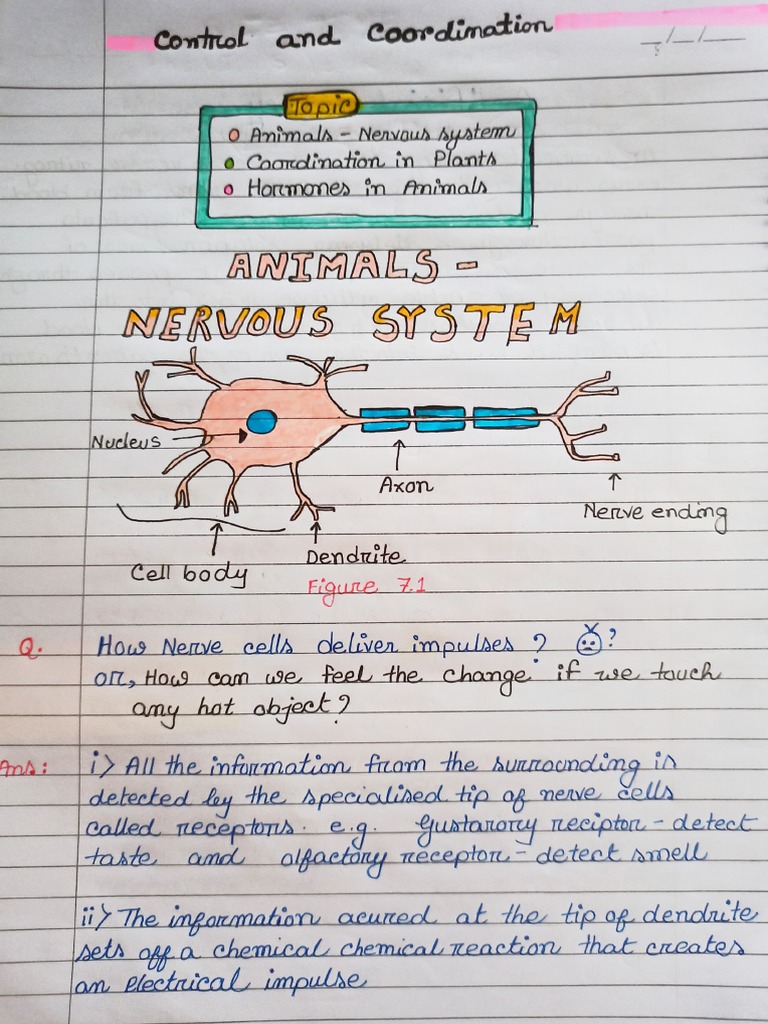 Control and Coordination
_/_/__
Topic
Animals - Nervous system
Coordination in Plants
Hormones in Animals
ANIMALS -
NERVOUS SYSTEM
Nucleus
Axon
Nerve ending
Dendrite
Cell body
Figure 7.1
Q. How Nerve cells deliver impulses ? ?
or, How can we feel the change if we touch
any hot object?
Ans: i> All the information from the surrounding is
detected by the specialised tip of nerve cells
called receptors. e.g. Gustarory reciptor - detect
taste and olfactory receptor - detect smell
ii> The information acured at the tip of dendrite
sets off a chemical chemical reaction that creates
an electrical impulse